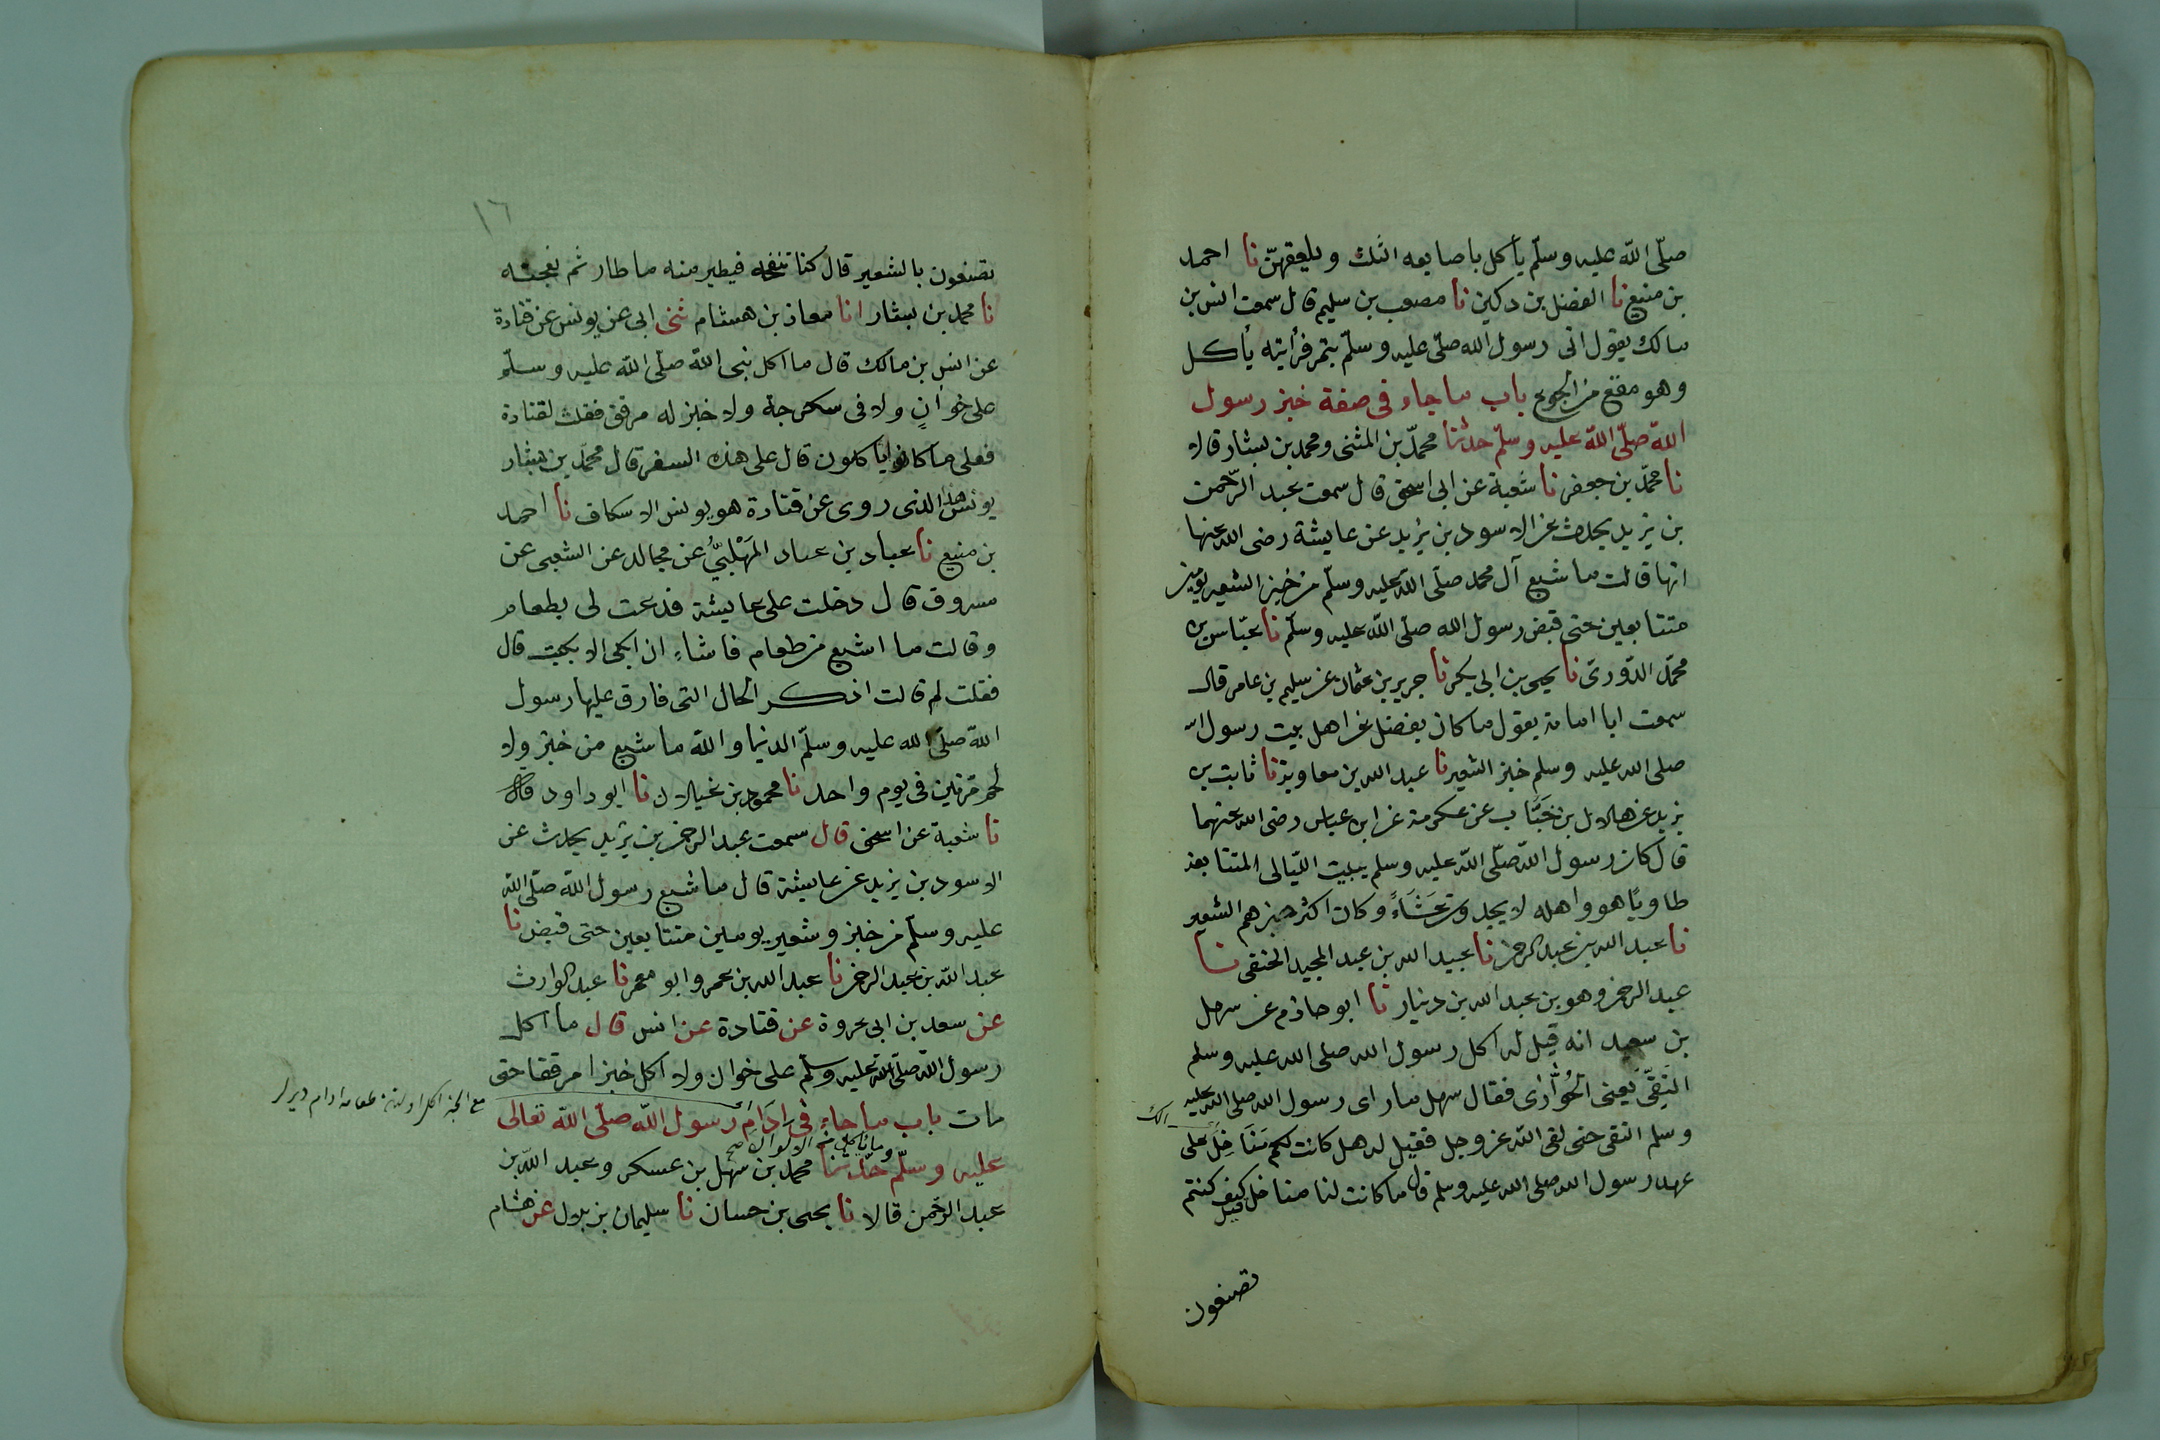 صلّى الله عليه وسلّم يأكل باصابعه الثلث ويلعقهنّ نا احمد
بن منيع نا الفضل بن دكين نا مصعب بن سليم قال سمعت انس بن
مالك يقول اتى رسول الله صلّى عليه وسلّم بتمر فرأيته يأكل
وهو مقع من الجوع باب ما جاء فى صفة خبز رسول
الله صلّى الله عليه وسلّم حدثنا محمّد بن المثنى ومحمد بن بشار قالا
نا محمّد بن جعفر نا شعبة عن ابى اسحق قال سمعت عبد الرّحمن
بن يزيد يحدث عن الاسود بن يزيد عن عايشة رضى الله عنها
انها قالت ما شبع آل محمد صلّى الله عليه وسلّم من خبز الشعير يومين
متتابعين حتى قبض رسول الله صلّى الله عليه وسلّم نا عبّاس بن
محمّد الدّورىّ نا يحيى بن ابى بكر نا جرير بن عثمان عن سليم بن عامر قال
سمعت ابا امامة يقول ما كان يفضل عن اهل بيت رسول الله
صلى الله عليه وسلم خبز الشعير نا عبد الله بن معاوية نا ثابت بن
يزيد عن هلال بن خبّاب عن عكرمة عن ابن عباس رضى الله عنهما
قال كان رسول الله صلّى الله عليه وسلم يبيت اللّيالى المتتابعة
طاويًا هو واهله لا يجدون عَشَاءً وكان اكثر خبزهم الشعير
نا عبد الله بن عبد الرحمن نا عبيد الله بن عبد المجيد الحنفى نا
عبد الرحمن وهو بن عبد الله بن دينار نا ابو حازم عن سهل
بن سعد انه قيل له اكل رسول الله صلى الله عليه وسلم
النقىّ يعنى الحُوَّارَى فقال سهل ما راى رسول الله صلى الله عليه
وسلم النقى حتى لقى الله عز وجل فقيل له هل كانت لكم مَنَاخِل على
عهد رسول الله صلى الله عليه وسلم قال ما كانت لنا مناخل قيل كيف كنتم
تصنعون
١٦
تصنعون بالشعير قال كنا ننفخه فيطير منه ما طار ثم نعجنه
نا محمد بن بشار انا معاذ بن هشام ثنى ابى عن يونس عن قتادة
عن انس بن مالك قال ما اكل نبى الله صلّى الله عليه وسلّم
على خوانٍ ولا فى سكرجة ولا خبز له مرقق فقلت لقتادة
فعلى ما كانوا يأكلون قال على هذه السفر قال محمّد بن بشار
يونس هذا الذى روى عن قتادة هو يونس الاسكاف نا احمد
بن منيع نا عباد بن عباد المهلبىّ عن مجالد عن الشعبى عن
مسروق قال دخلت على عايشة فدعت لى بطعام
وقالت ما اشبع من طعام فاشاء ان ابكى الا بكيت قال
فقلت لم قالت اذكر الحال التى فارق عليها رسول
الله صلّى الله عليه وسلّم الدنيا والله ما شبع من خبز ولا
لحم مرّتين فى يوم واحد نا محمود بن غيلان نا ابو داود قال
نا شعبة عن اسحق قال سمعت عبد الرحمن بن يزيد يحدث عن
الاسود بن يزيد عن عايشة قال ما شبع رسول الله صلّى الله
عليه وسلّم من خبز وشعير يومين متتابعين حتى قبض نا
عبد الله بن عبد الرحمن نا عبد الله بن عمرو ابو معمر نا عبد الوارث
عن سعد بن ابى عروة عن قتادة عن انس قال ما اكل
رسول الله صلّى الله عليه وسلّم على خوان ولا اكل خبزا مرققا حتى
مات باب ما جاء فى اِدَامِ رسول الله صلّى الله تعالى
وما اكل من الالوان صح
عليه وسلّم حدّثنا محمد بن سهل بن عسكر وعبد الله بن
عبد الرّحمن قالا نا يحيى بن حسان نا سليمان بن بلال عن هشام